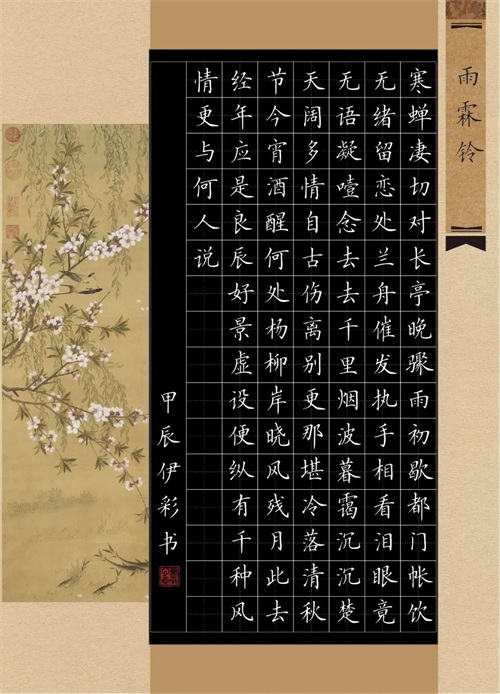 雨霖铃
寒蝉凄切对长亭晚骤雨初歇都门帐饮
无绪留恋处兰舟催发执手相看泪眼竟
无语凝噎念去去千里烟波暮霭沉沉楚
天阔多情自古伤离别更那堪冷落清秋
节今宵酒醒何处杨柳岸晓风残月此去
经年应是良辰好景虚设便纵有千种风
情更与何人说
甲辰伊彩书